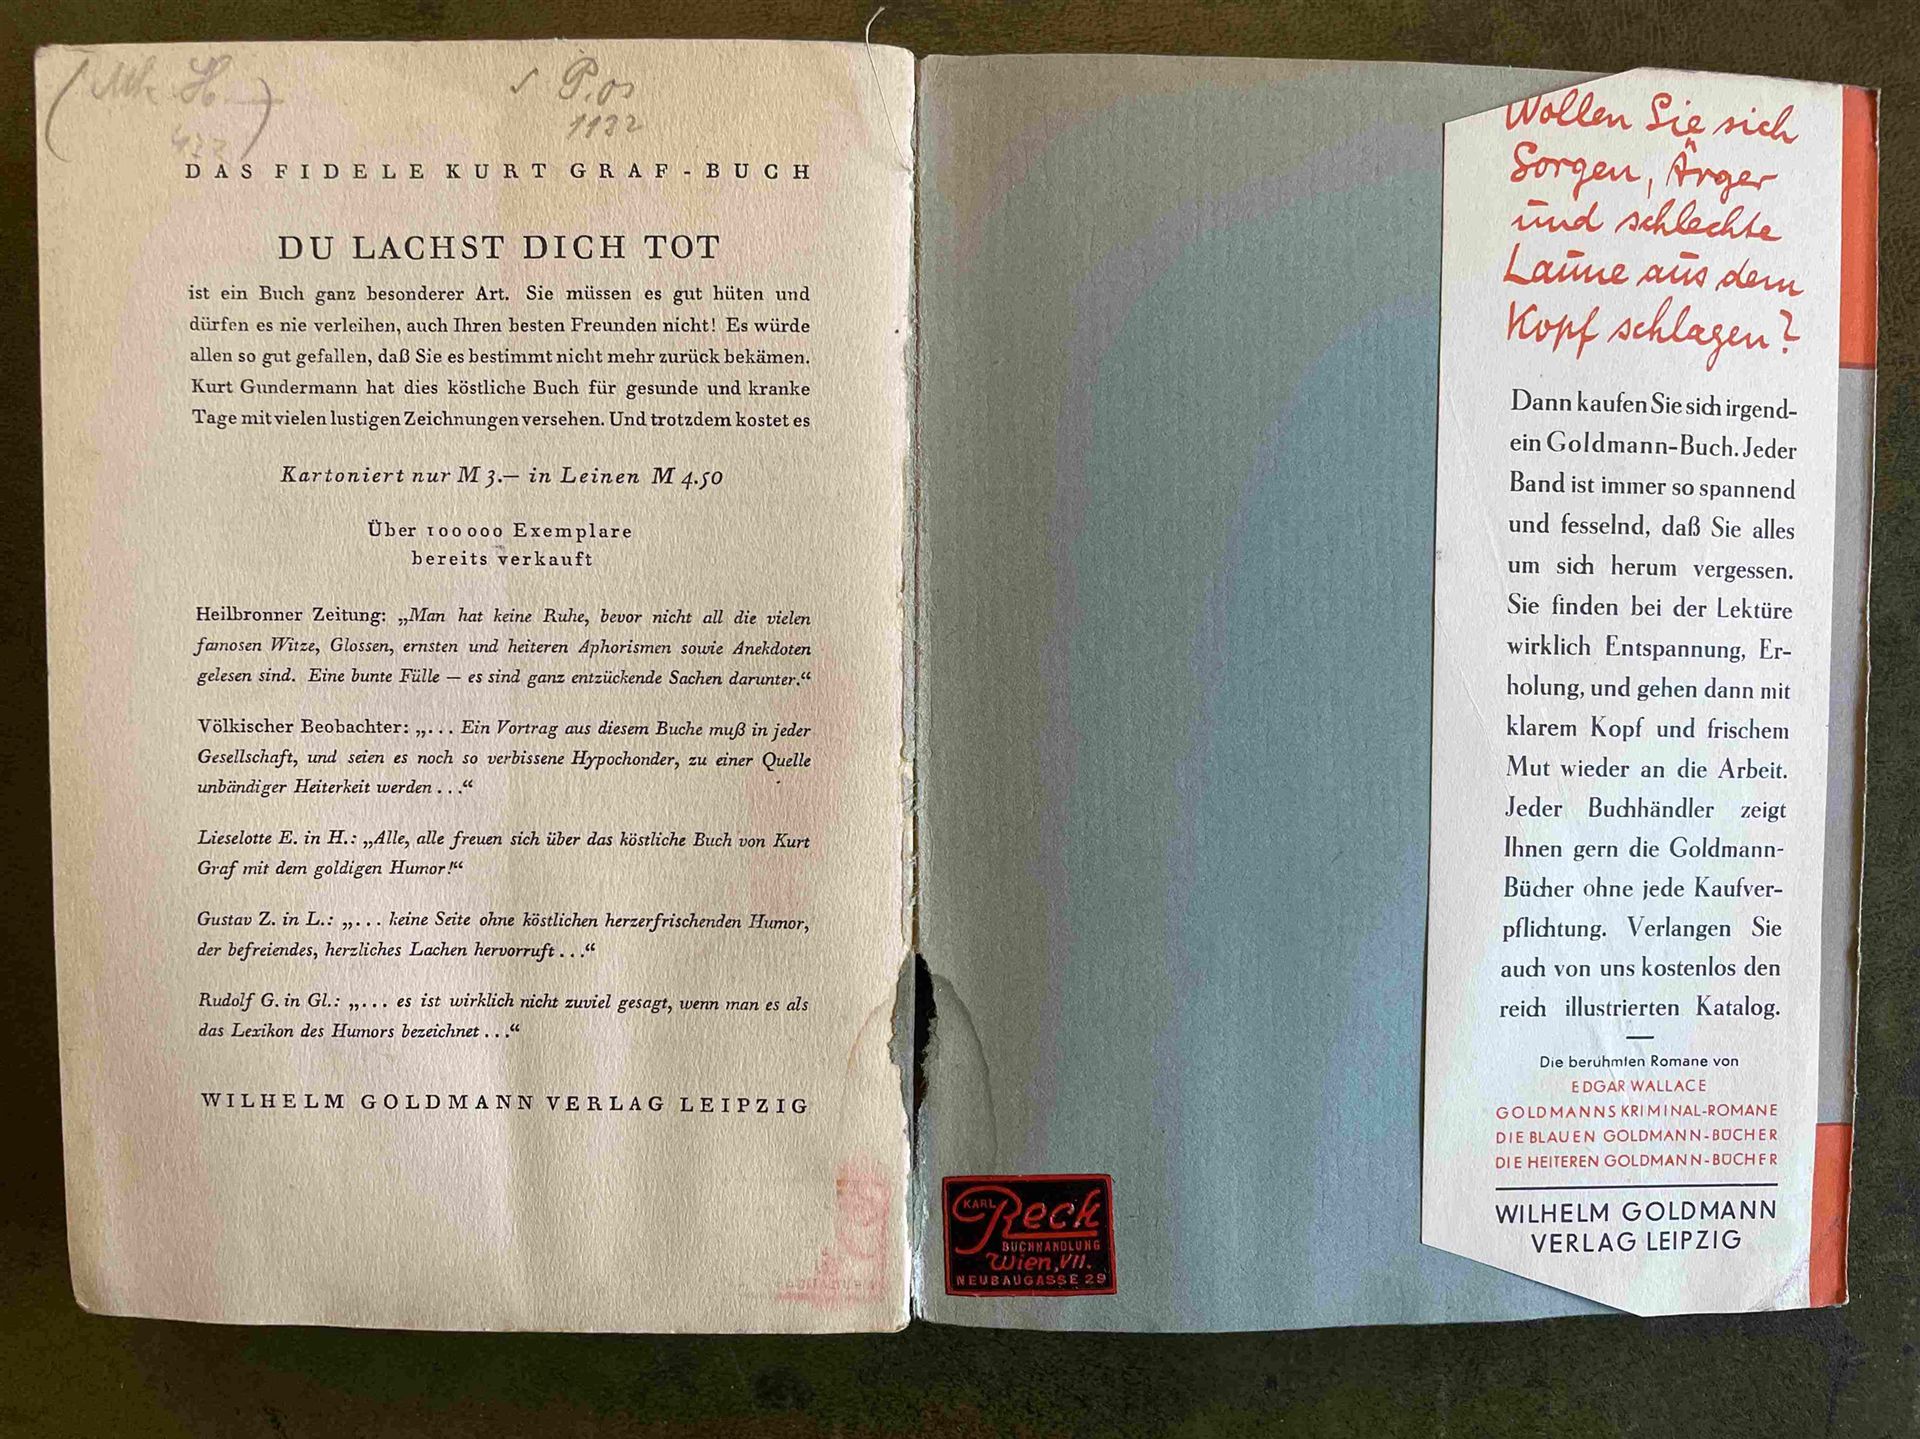 P.os
1132
DAS FIDELE KURT GRAF-BUCH
DU LACHST DICH TOT
ist ein Buch ganz besonderer Art. Sie müssen es gut hüten und
dürfen es nie verleihen, auch Ihren besten Freunden nicht! Es würde
allen so gut gefallen, daß Sie es bestimmt nicht mehr zurück bekämen.
Kurt Gundermann hat dies köstliche Buch für gesunde und kranke
Tage mit vielen lustigen Zeichnungen versehen. Und trotzdem kostet es
Kartoniert nur M 3.— in Leinen M 4.50
Über 100 000 Exemplare
bereits verkauft
Heilbronner Zeitung: „Man hat keine Ruhe, bevor nicht all die vielen
famosen Witze, Glossen, ernsten und heiteren Aphorismen sowie Anekdoten
gelesen sind. Eine bunte Fülle — es sind ganz entzückende Sachen darunter.“
Völkischer Beobachter: „... Ein Vortrag aus diesem Buche muß in jeder
Gesellschaft, und seien es noch so verbissene Hypochonder, zu einer Quelle
unbändiger Heiterkeit werden ...“
Lieselotte E. in H.: „Alle, alle freuen sich über das köstliche Buch von Kurt
Graf mit dem goldigen Humor!“
Gustav Z. in L.: „... keine Seite ohne köstlichen herzerfrischenden Humor,
der befreiendes, herzliches Lachen hervorruft ...“
Rudolf G. in Gl.: „... es ist wirklich nicht zuviel gesagt, wenn man es als
das Lexikon des Humors bezeichnet ...“
WILHELM GOLDMANN VERLAG LEIPZIG
KARL
Reck
BUCHHANDLUNG
Wien, VII.
NEUBAUGASSE 29
Wollen Sie sich
Sorgen, Ärger
und schlechte
Laune aus dem
Kopf schlagen?
Dann kaufen Sie sich irgend-
ein Goldmann-Buch. Jeder
Band ist immer so spannend
und fesselnd, daß Sie alles
um sich herum vergessen.
Sie finden bei der Lektüre
wirklich Entspannung, Er-
holung, und gehen dann mit
klarem Kopf und frischem
Mut wieder an die Arbeit.
Jeder Buchhändler zeigt
Ihnen gern die Goldmann-
Bücher ohne jede Kaufver-
pflichtung. Verlangen Sie
auch von uns kostenlos den
reich illustrierten Katalog.
Die berühmten Romane von
EDGAR WALLACE
GOLDMANNS KRIMINAL-ROMANE
DIE BLAUEN GOLDMANN-BÜCHER
DIE HEITEREN GOLDMANN-BÜCHER
WILHELM GOLDMANN
VERLAG LEIPZIG